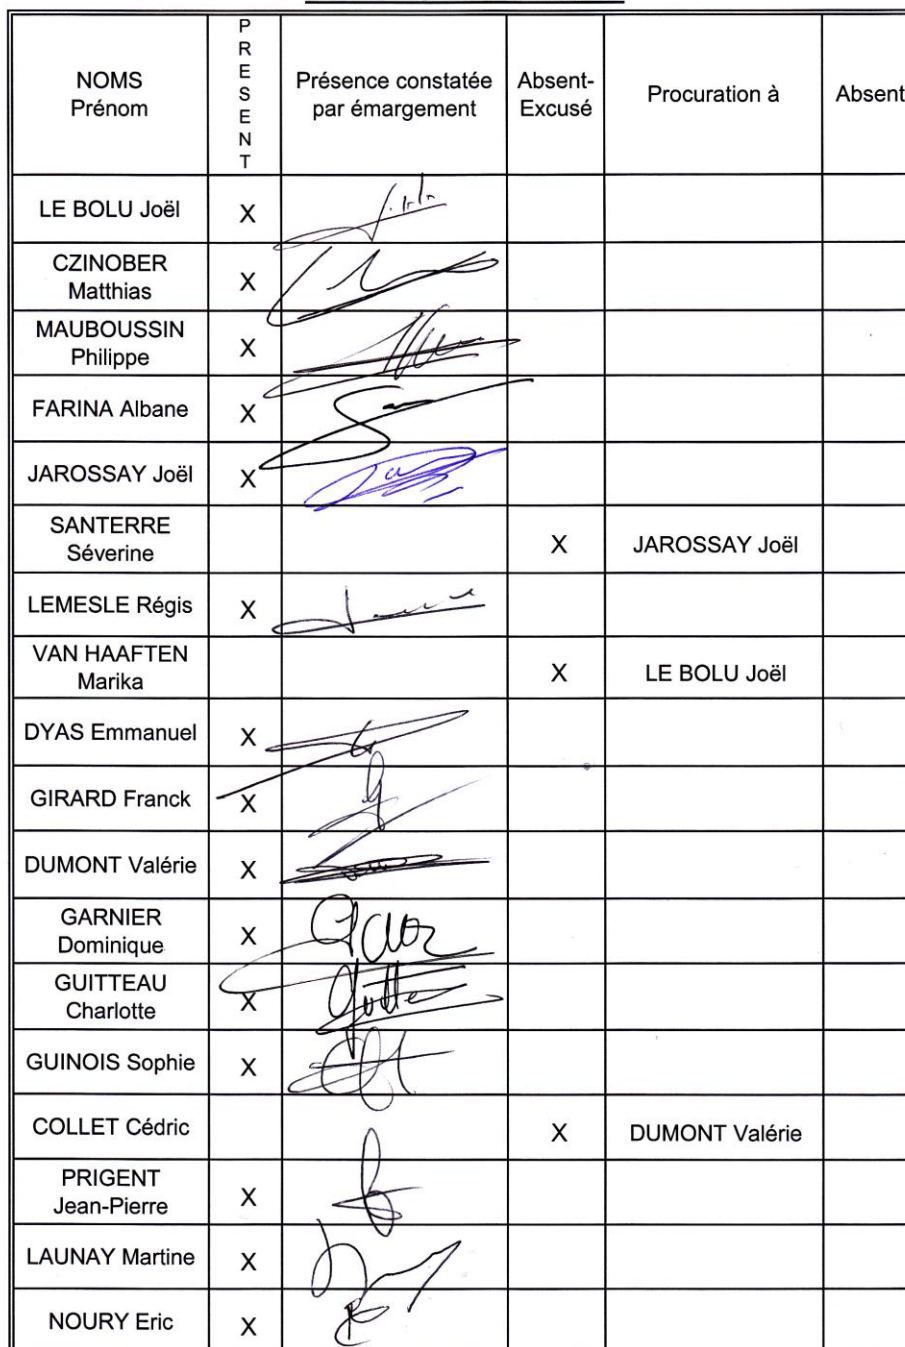 NOMS
Prénom
PRESENT
Présence constatée
par émargement
Absent-
Excusé
Procuration à
Absent
LE BOLU Joël X
CZINOBER
Matthias X
MAUBOUSSIN
Philippe X
FARINA Albane X
JAROSSAY Joël X
SANTERRE
Séverine X JAROSSAY Joël
LEMESLE Régis X
VAN HAAFTEN
Marika X LE BOLU Joël
DYAS Emmanuel X
GIRARD Franck X
DUMONT Valérie X
GARNIER
Dominique X
GUITTEAU
Charlotte X
GUINOIS Sophie X
COLLET Cédric X DUMONT Valérie
PRIGENT
Jean-Pierre X
LAUNAY Martine X
NOURY Eric X